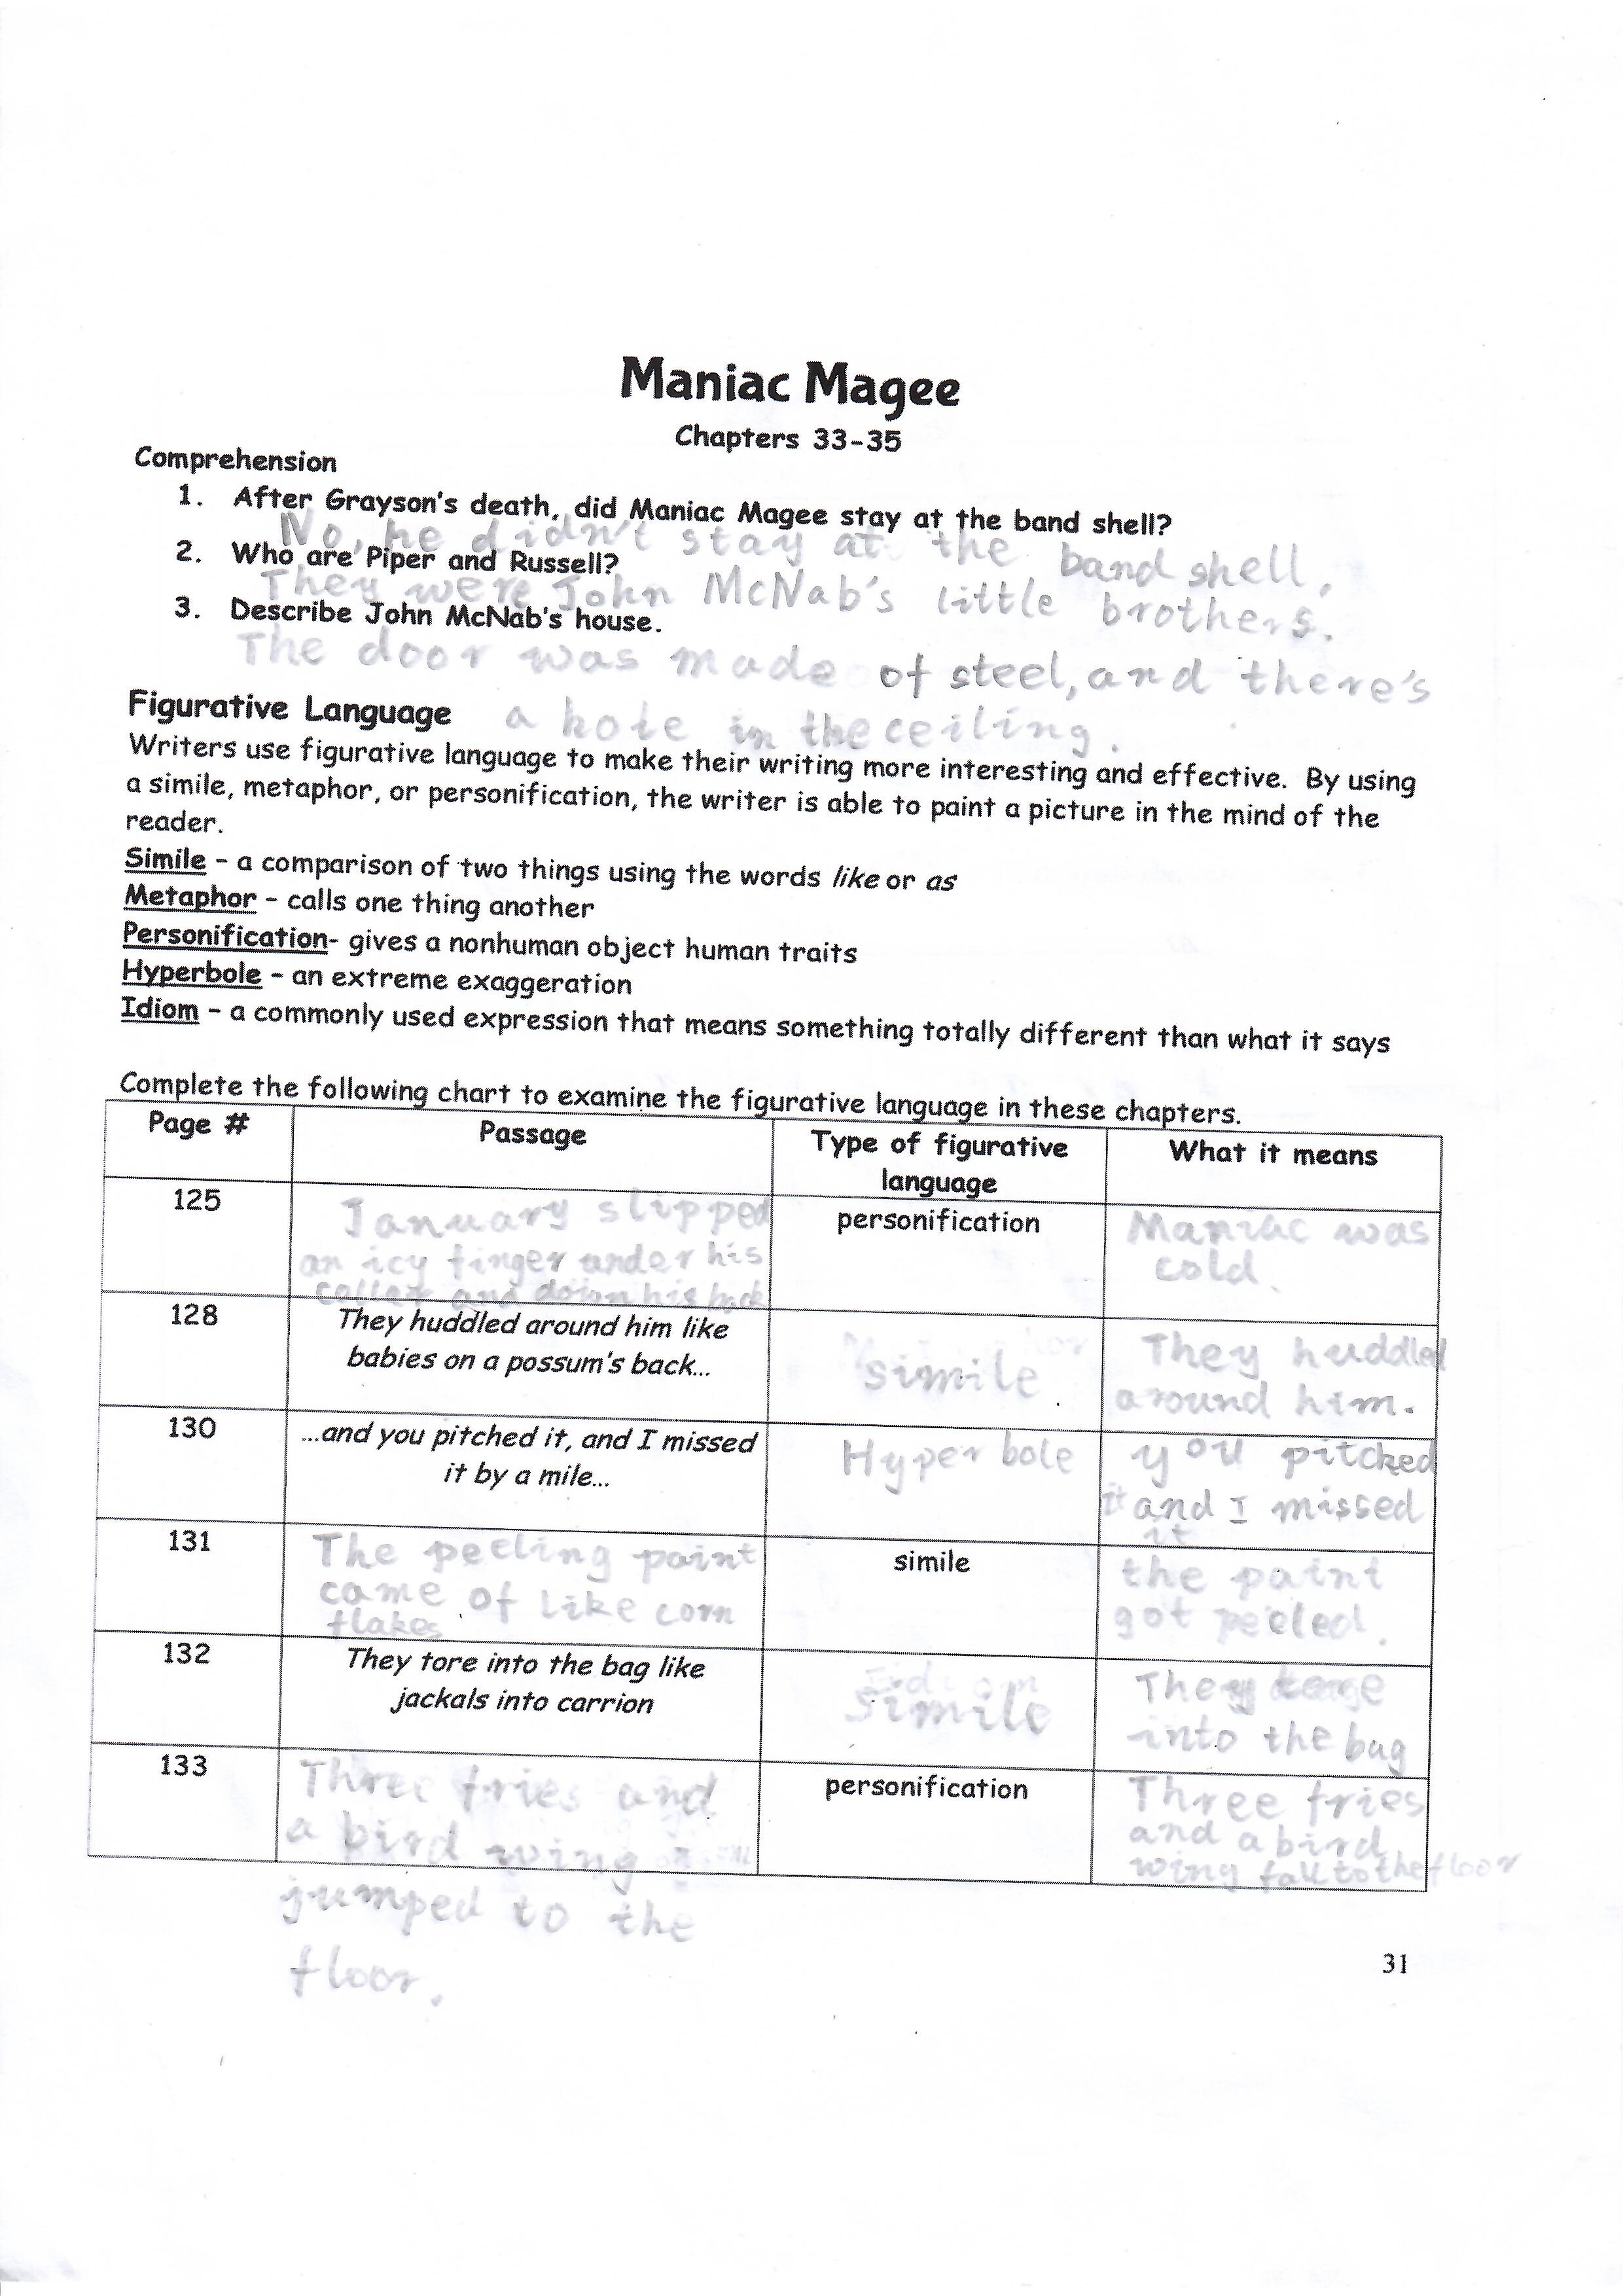 Maniac Magee
Chapters 33-35
Comprehension
1. After Grayson's death, did Maniac Magee stay at the band shell?
No, he didn't stay at the band shell.
2. Who are Piper and Russell?
They were John McNab's little brothers.
3. Describe John McNab's house.
The door was made of steel, and there's
a hole in the ceiling.
Figurative Language
Writers use figurative language to make their writing more interesting and effective. By using
a simile, metaphor, or personification, the writer is able to paint a picture in the mind of the
reader.
Simile – a comparison of two things using the words like or as
Metaphor – calls one thing another
Personification- gives a nonhuman object human traits
Hyperbole – an extreme exaggeration
Idiom – a commonly used expression that means something totally different than what it says
Complete the following chart to examine the figurative language in these chapters.
Page # Passage Type of figurative What it means
language
125 January slipped personification Maniac was
an icy finger under his cold.
and down his back
128 They huddled around him like simile They huddled
babies on a possum's back... around him.
130 ...and you pitched it, and I missed Hyperbole you pitched
it by a mile... it and I missed
it
131 The peeling paint simile the paint
came of like corn got peeled.
flakes
132 They tore into the bag like simile They
jackals into carrion into the bag
133 Three fries and personification Three fries
a bird wing and a bird
jumped to the wing fall to the floor
floor.
31